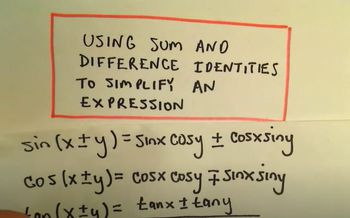 USING SUM AND
DIFFERENCE IDENTITIES
TO SIMPLIFY AN
EXPRESSION
sin (x±y) = sinx cosy ± cosxsiny
cos (x±y) = cosx cosy ∓ sinx siny
tan (x±y) = tanx ± tany